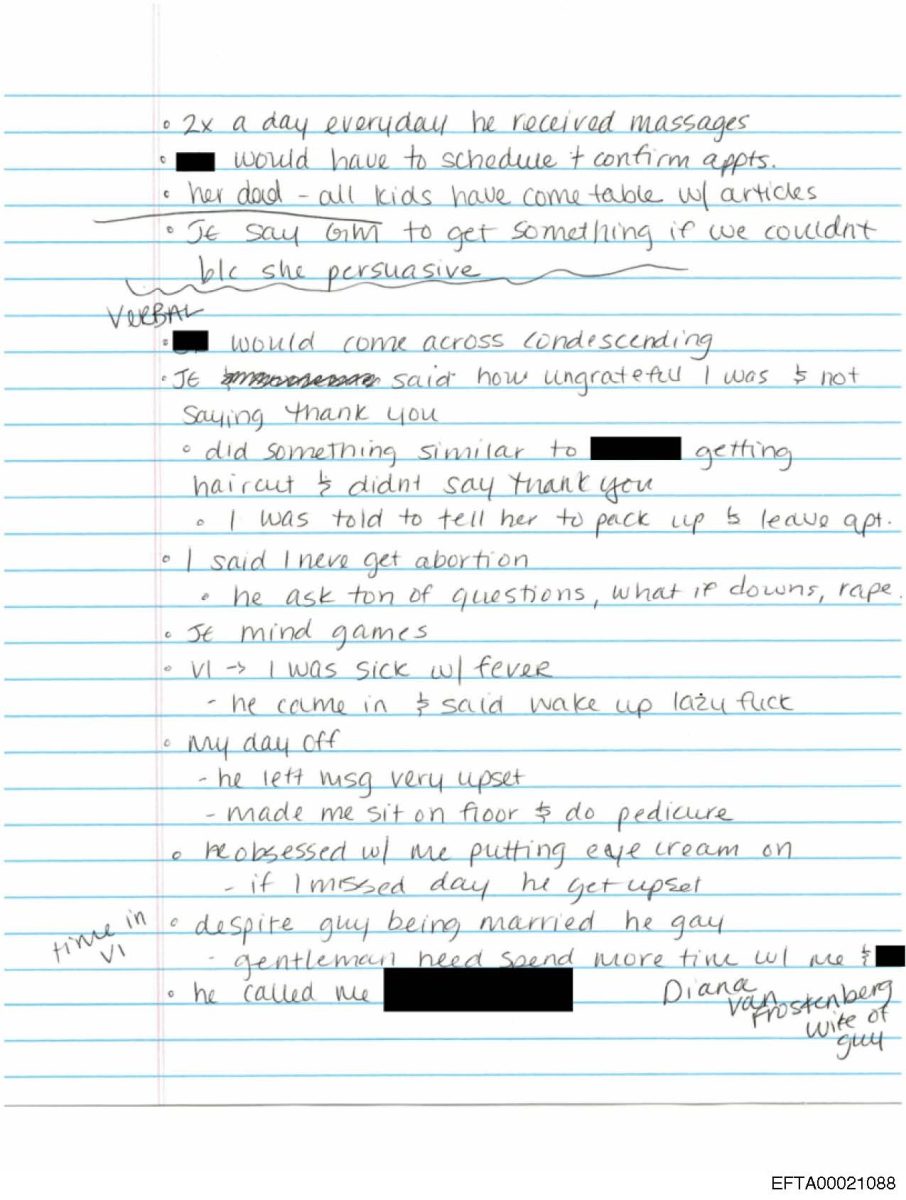 • 2x a day everyday he received massages
• would have to schedule + confirm appts.
• her dad - all kids have come table w/ articles
• JE say GM to get something if we couldnt
b/c she persuasive
VERBAL
• would come across condescending
• JE said how ungrateful I was & not
saying thank you
• did something similar to getting
haircut & didnt say thank you
• I was told to tell her to pack up & leave apt.
• I said I neve get abortion
• he ask ton of questions, what if downs, rape.
• JE mind games
• VI → I was sick w/ fever
- he came in & said wake up lazy fuck
• My day off
- he left msg very upset
- made me sit on floor & do pedicure
• he obsessed w/ me putting eye cream on
- if I missed day he get upset
time in
VI
• despite guy being married he gay
- gentleman need spend more time w/ me &
• he called me
Diana
van
Frostenberg
wife of
guy
EFTA00021088